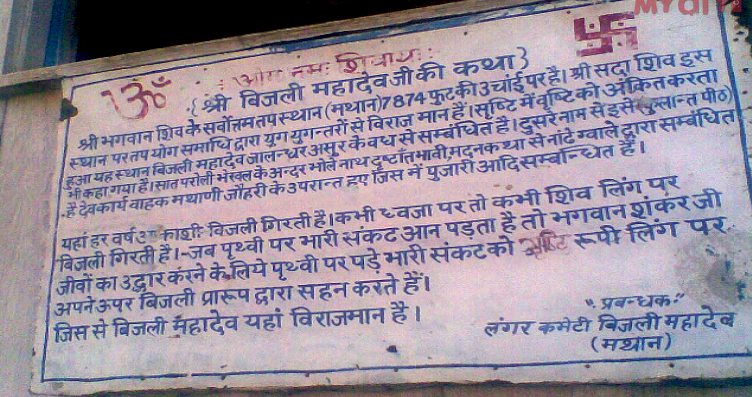 MyGin
ॐ ओम नमः शिवाय:
{श्री बिजली महादेव जी की कथा}
श्री भगवान शिव के सर्वोत्तम तप स्थान (मथान) 7874 फुट की उंचाई पर है। श्री सदा शिव इस
स्थान पर तप योग समाधि द्वारा युग युगन्तरों से विराज मान हैं। सृष्टि में वृष्टि को अंकित करता
हुआ यह स्थान बिजली महादेव जालन्धर असुर के वध से सम्बंधित है। दूसरे नाम से इसे (कुलान्त पीठ)
भी कहा गया है। सात परोली भेखल के अन्दर भोले नाथ दुष्टांत भावी, मदन कथा से नांढे ग्वाले द्वारा सम्बंधित
है देव कार्य वाहक मथाणी जौहरी के उपरान्त हुए जिस में पुजारी आदि सम्बन्धित हैं।
यहां हर वर्ष आकाशी बिजली गिरती है। कभी ध्वजा पर तो कभी शिव लिंग पर
बिजली गिरती है।-जब पृथ्वी पर भारी संकट आन पड़ता है तो भगवान शंकर जी
जीवों का उद्धार करने के लिये पृथ्वी पर पड़े भारी संकट को रूपी लिंग पर
अपने ऊपर बिजली प्रारूप द्वारा सहन करते हैं।
जिस से बिजली महादेव यहां विराजमान है।
"प्रबन्धक"
लंगर कमेटी बिजली महादेव
(मथान)